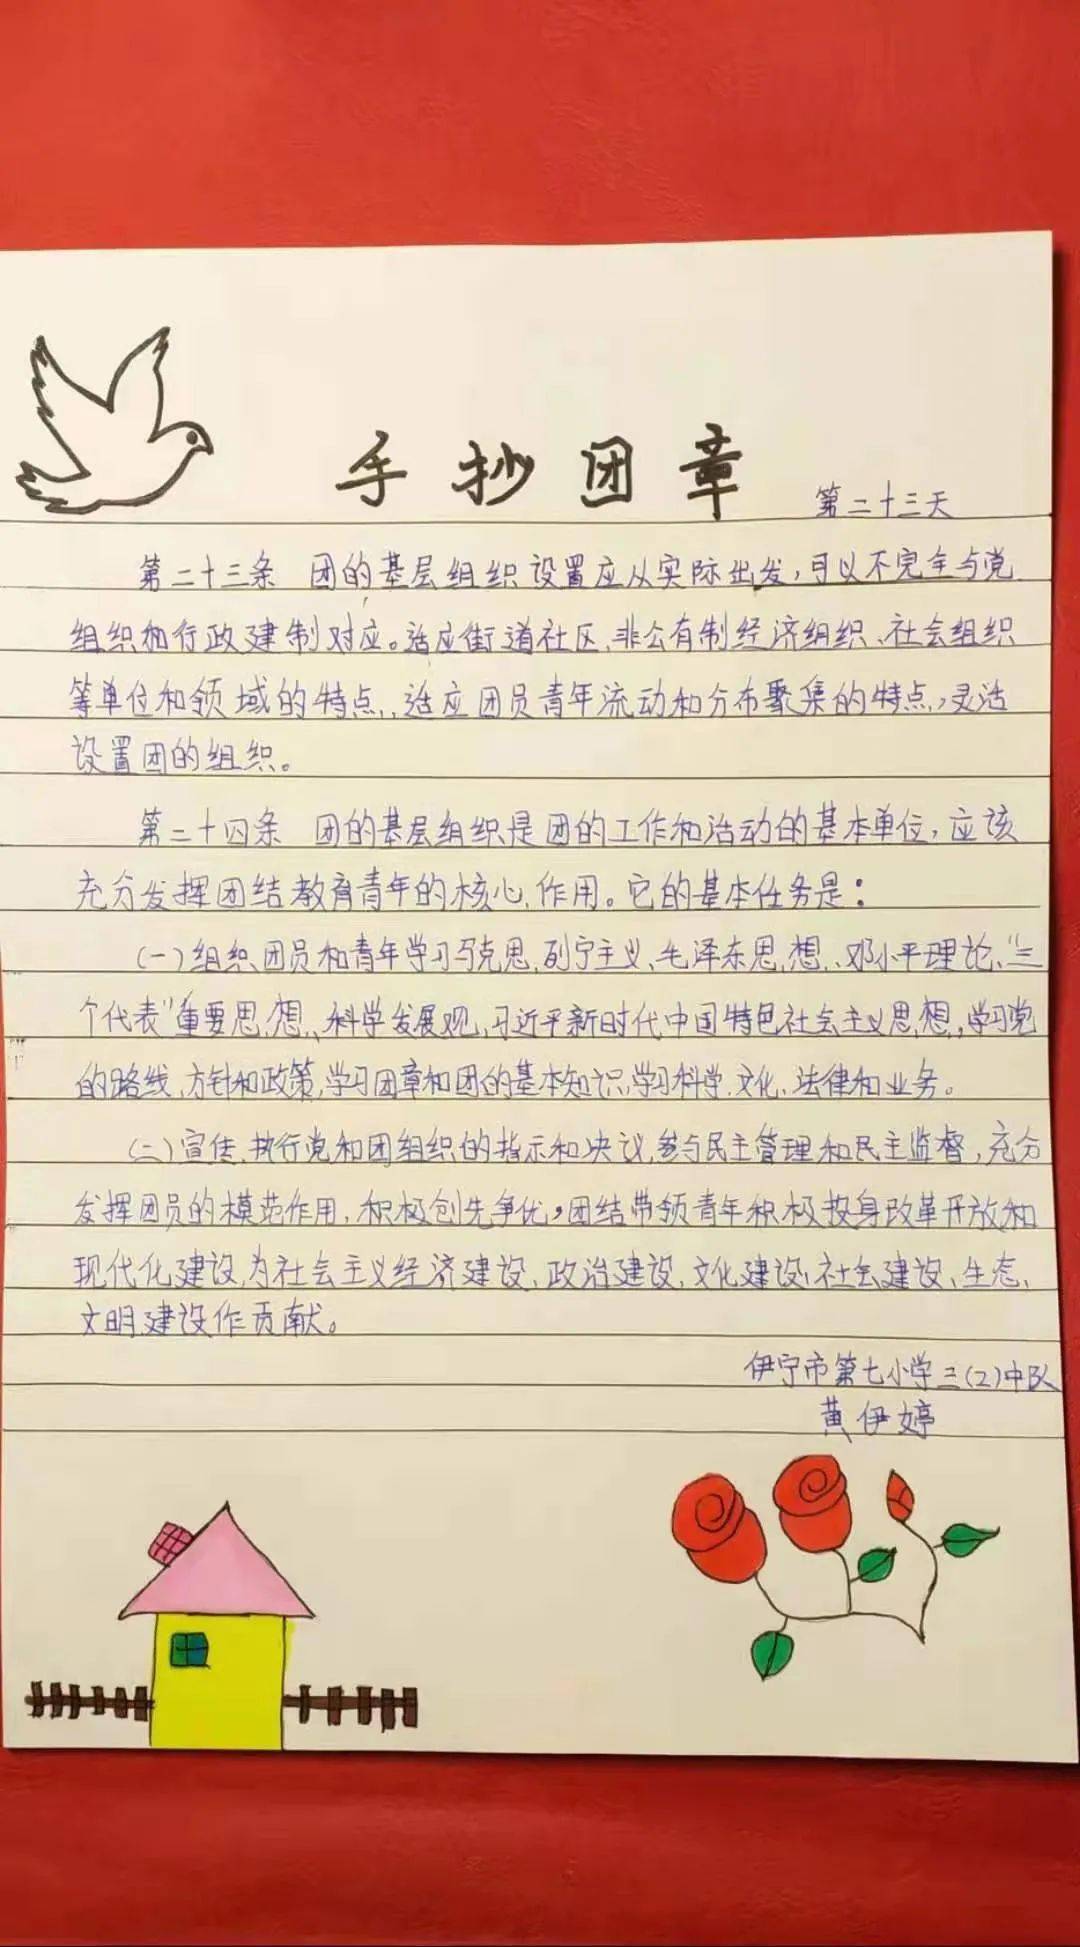 手抄团章
第二十三天
第二十三条 团的基层组织设置应从实际出发,可以不完全与党
组织和行政建制对应。适应街道社区、非公有制经济组织、社会组织
等单位和领域的特点,适应团员青年流动和分布聚集的特点,灵活
设置团的组织。
第二十四条 团的基层组织是团的工作和活动的基本单位,应该
充分发挥团结教育青年的核心作用。它的基本任务是:
(一)组织团员和青年学习马克思列宁主义、毛泽东思想、邓小平理论、“三
个代表”重要思想、科学发展观、习近平新时代中国特色社会主义思想,学习党
的路线、方针和政策,学习团章和团的基本知识,学习科学、文化、法律和业务。
(二)宣传、执行党和团组织的指示和决议,参与民主管理和民主监督,充分
发挥团员的模范作用,积极创先争优,团结带领青年积极投身改革开放和
现代化建设,为社会主义经济建设、政治建设、文化建设、社会建设、生态
文明建设作贡献。
伊宁市第七小学三(2)中队
黄伊婷